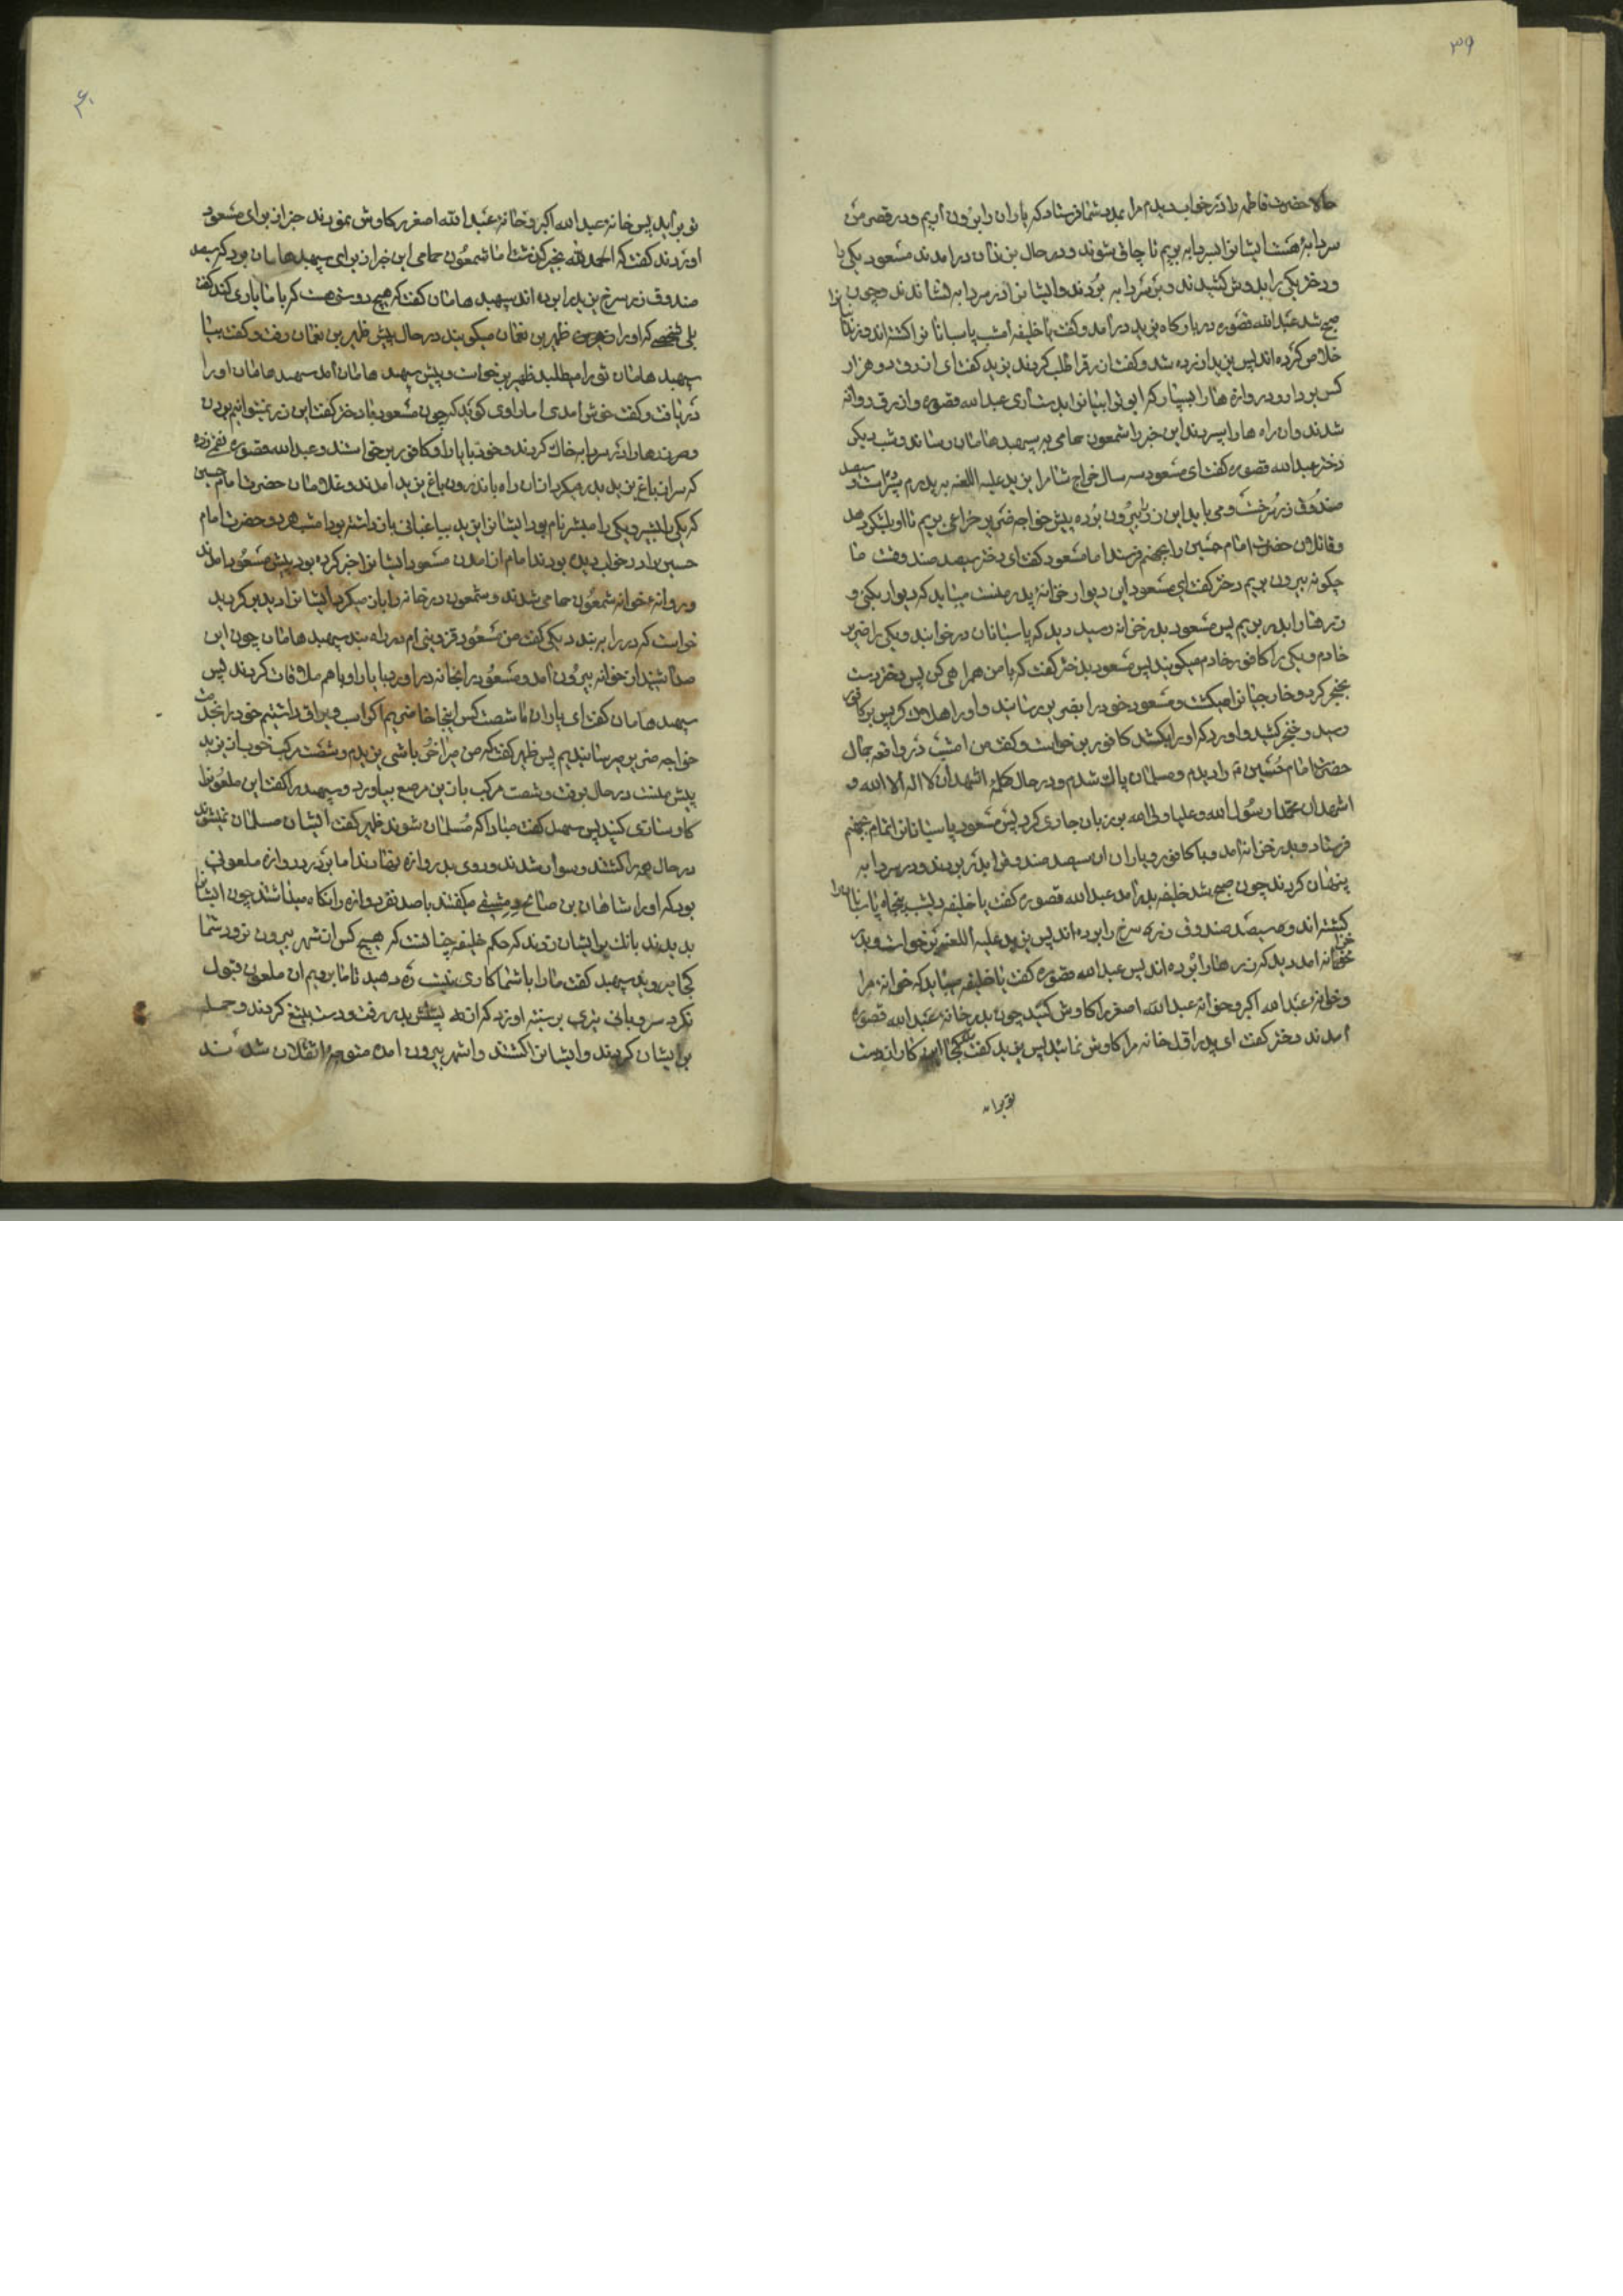 ۳۹
حالا حضرت فاطمه را در خواب دیدم مرا بمدد شما فرستاد که یاران را بیرون آریم و در قصر من
سردابهٔ هست ایشانرا بسردابه بریم تا چاق شوند و در حال بزندان درامدند مسعود یکی را
و دختر یکی را بدوش کشیدند و بسردابه بردند و ایشانرا در سردابه نشاندند و چون
صبح شد عبدالله قصوره در بارگاه یزید درآمد و گفت یا خلیفه امشب پاسبانانرا کشته‌اند و زندانیانرا
خلاص کرده‌اند پس یزید ازرده شد و گفت ازرق را طلب کردند یزید گفت ای ازرق دو هزار
کس بردار و دروازه‌ها را بسپار که ایوبی ایشانرا بدست آری عبدالله قصوره و ازرق روانه
شدند و ان راه‌ها را بسپردند این خبر را شمعون حامی به سپهبد هامان رساند و شب دیگر
دختر عبدالله قصوره گفت ای مسعود سه سال خراج شام را یزید علیه اللعنه به پدرم سپرده است و سیصد
صندوق زر سرخست و می‌باید این زر بیرون برده پیش خواجه ضریر خزاعی بریم تا او لشکر دهد
و قاتلان حضرت امام حسین را بجهنم فرستد اما مسعود گفت ای دختر سیصد صندوقست ما
چگونه بیرون بریم دختر گفت ای مسعود این دیوار خوانهٔ پدر منست میباید که دیوار بکنی و
زرها را بدر بریم پس مسعود بدر خوانه رسید دید که پاسبانان در خوابند و یکی را ضریر
خادم و یکی را کافور خادم میگویند پس مسعود بدختر گفت که با من همراهی کن پس دختر دست
بخنجر کرد و خارجیانرا میکشت و مسعود خود را بضریر رسانید و او را هلاک کرد پس بر کافور
رسید و خنجر کشید و اورد که او را بکشد کافور برخواست و گفت من امشب در واقعه جمال
حضرت امام حسین را دیدم و مسلمان پاک شدم و در حال کلمهٔ اشهد ان لا اله الا الله و
اشهد ان محمدا رسول الله و علیا ولی الله بر زبان جاری کرد پس مسعود پاسبانانرا تمام بجهنم
فرستاد و بدر خزانه امد و با کافور و یاران ان سیصد صندوق را بدر بردند و در سردابه
پنهان کردند چون صبح شد خلیفه بدرآمد عبدالله قصوره گفت یا خلیفه دیشب پنجاه پاسبانانرا
کشته‌اند و سیصد صندوق زر سرخ را برده‌اند پس یزید علیه اللعنه برخواست و بدر
خزانه امد دید که زرها را برده‌اند پس عبدالله قصوره گفت یا خلیفه میباید که خوانهٔ مرا
و خانهٔ عبدالله اکبر و خوانهٔ عبدالله اصغر را کاوش کنید چون بدر خانهٔ عبدالله قصوره
آمدند دختر گفت ای پدر اول خانه مرا کاوش نمائید پس یزید گفت کجا این کار از دست
تو برآید
۴۰
تو برآید پس خانهٔ عبدالله اکبر و خانهٔ عبدالله اصغر کاوش نمودند خبر از برای مسعود
اوردند گفت که الحمدلله بخیر گذشت اما شمعون حامی این خبر از برای سپهبد هامان برد که سیصد
صندوق زر سرخ یزید را برده‌اند سپهبد هامان گفت که هیچ دوستی هست که با ما یاری کند گفت
بلی شخصی که او را ظهیر بن نعمان میگویند در حال پیش ظهیر بن نعمان رفت و گفت بیا
سپهبد هامان تو را میطلبد ظهیر برخواست و پیش سپهبد هامان آمد سپهبد هامان او را
دریافت و گفت خوش آمدی اما راوی گوید که چون مسعود با دختر گفت این زر نمیتوانیم بردن
و صرفه‌ها را در سردابه خاک کردند و خود با یاران و کافور برخواستند و عبدالله قصوره نقب زده
که سر از باغ یزید بدر میکرد از ان راه باندرون باغ یزید امدند و غلامان حضرت امام حسین
که یکی را بشیر و یکی را مبشر نام بود ایشانرا یزید بباغبانی بازداشته بود امشب هر دو حضرت امام
حسین را در خواب دیده بودند امام از امدن مسعود ایشانرا خبر کرده بود پیش مسعود امدند
و روانهٔ خوانه شمعون حامی شدند و شمعون در خانه را باز میکرد ایشانرا دید برگردید
خواست که در را ببرندد یکی گفت من مسعود قزوینی‌ام در را مبند سپهبد هامان چون این
صدا شنید از خوانه بیرون آمد و مسعود را بخانه دراورد با یاران و با هم ملاقات کردند پس
سپهبد هامان گفت ای یاران ما شصت کس اینجا حاضریم اگر اسب و یراق داشتیم خود را بخدمت
خواجه ضریر میرسانیدیم پس ظهیر گفت که من میراخور باشی یزیدم و شصت مرکب خوب از یزید
پیش منست در حال برفت و شصت مرکب با زین مرصع بیاورد و سپهبد را گفت این ملعونرا
کارسازی کنید پس سپهبد گفت مبادا که مسلمان شوند ظهیر گفت ایشان مسلمان نمیشوند
در حال همه را کشتند و سوار شدند و روی بدروازه نهادند اما بر در دروازه ملعونی
بود که او را شاهان بن صالح دمشقی میگفتند با صد نفر دروازه را نگاه میداشتند چون ایشانرا
بدیدند بانک بر ایشان زدند که حکم خلیفه چنانست که هیچ کس از شهر بیرون نرود شما
کجا میروید سپهبد گفت ما را با شما کاری نیست ره دهید تا ما برویم ان ملعون قبول
نکرد سر و پای نیزی بر سینه او زد که از پشتش بدر رفت و دست بتیغ کردند و حمله
بر ایشان کردند و ایشانرا کشتند و از شهر بیرون امده متوجهٔ شدند